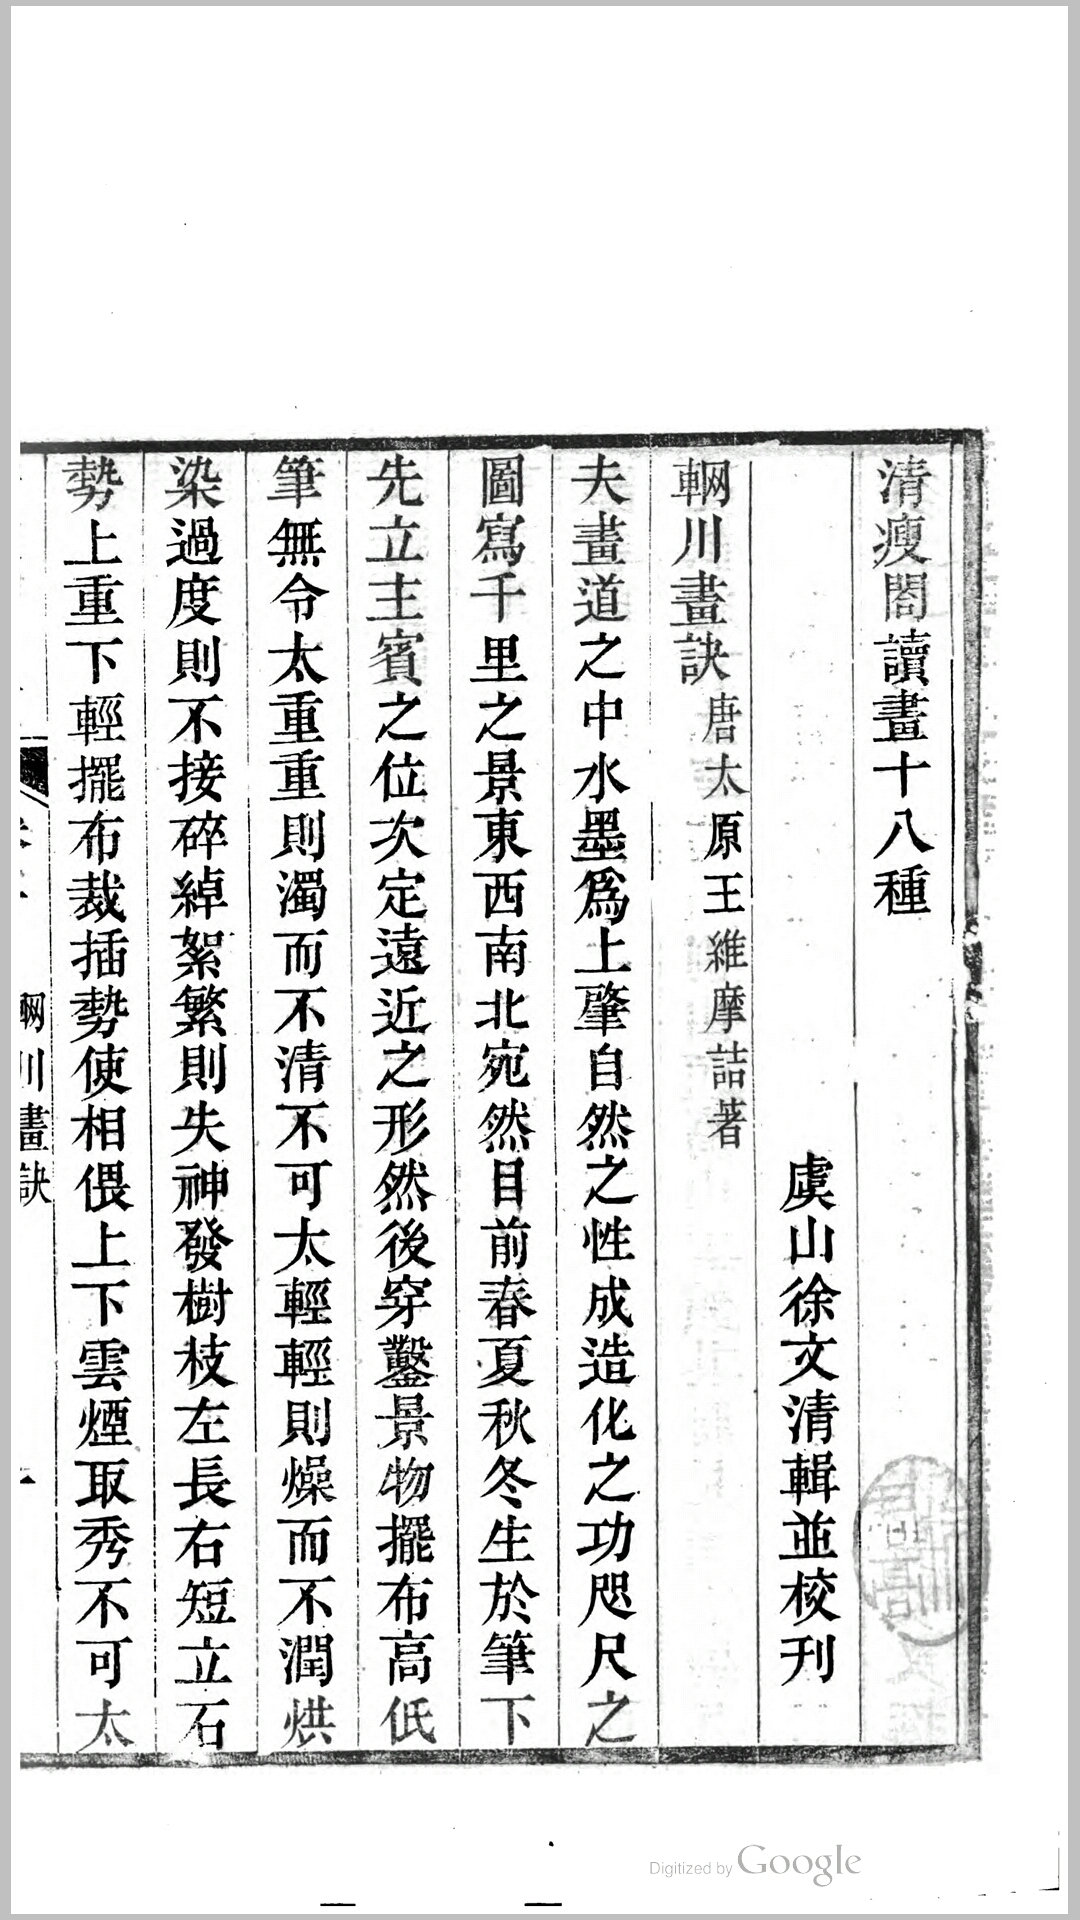 清瘦閣讀畫十八種
虞山徐文清輯並校刊
輞川畫訣唐太原王維摩詰著
夫畫道之中水墨爲上肇自然之性成造化之功咫尺之
圖寫千里之景東西南北宛然目前春夏秋冬生於筆下
先立主賓之位次定遠近之形然後穿鑿景物擺布高低
筆無令太重重則濁而不清不可太輕輕則燥而不潤烘
染過度則不接碎綽絮繁則失神發樹枝左長右短立石
勢上重下輕擺布裁插勢使相偎上下雲煙取秀不可太
輞川畫訣
Digitized by Google